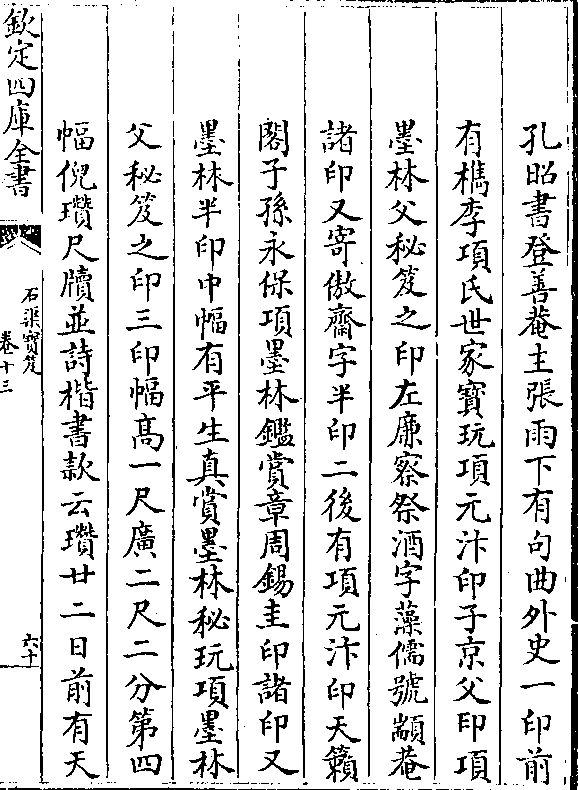 孔昭書登善菴主張雨下有句曲外史一印前
有檇李項氏世家寶玩項元汴印子京父印項
墨林父秘笈之印左廉察祭酒字藻儒號顓菴
諸印又寄傲齋字半印二後有項元汴印天籟
閣子孫永保項墨林鑑賞章周錫圭印諸印又
墨林半印中幅有平生真賞墨林秘玩項墨林
父秘笈之印三印幅高一尺廣二尺二分第四
幅倪瓚尺牘並詩楷書款云瓚廿二日前有天
欽定四庫全書
石渠寶笈
卷十三
六十